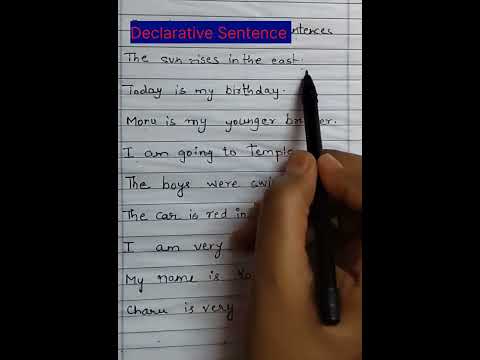 Declarative Sentence ntences
The sun rises in the east.
Today is my birthday.
Monu is my younger br er.
I am going to temple
The boys were swi
The car is red in
I am very
My name is
Charu is very